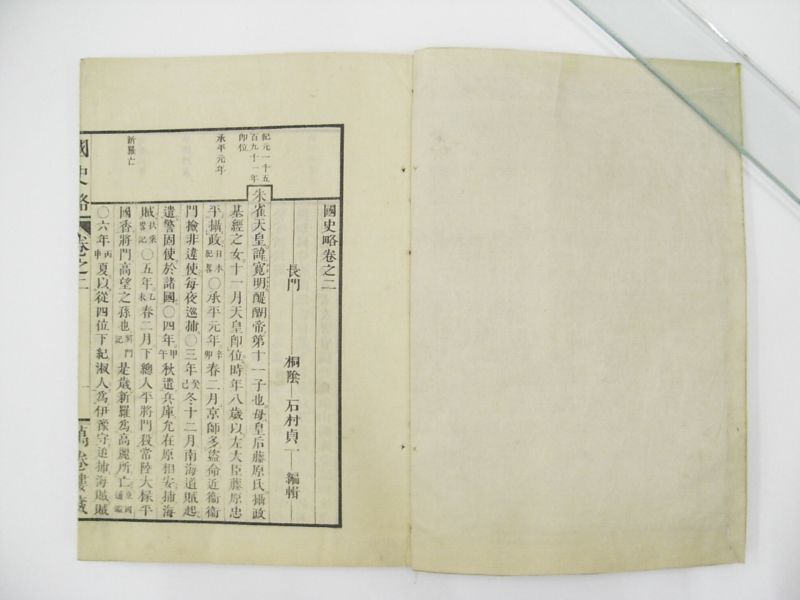 國史略卷之二
長門 桐陰 石村貞一 編輯
紀元一千五
百九十一年
即位
承平元年
新羅亡
朱雀天皇諱寛明醍醐帝第十一子也母皇后藤原氏攝政
基經之女十一月天皇即位時年八歲以左大臣藤原忠
平攝政日本紀畧〇承平元年辛卯春二月京師多盜命近衞衞
門撿非違使每夜巡捕〇三年癸巳冬十二月南海道賊起
遣警固使於諸國〇四年甲午秋遣兵庫允在原相安捕海
賊扶桑畧記〇五年乙未春二月下總人平將門殺常陸大掾平
國香將門高望之孫也將門記是歲新羅爲高麗所亡東國通鑑
〇六年丙申夏以從四位下紀淑人爲伊豫守追捕海賊賊
國史略 卷之二 一 萬卷樓藏